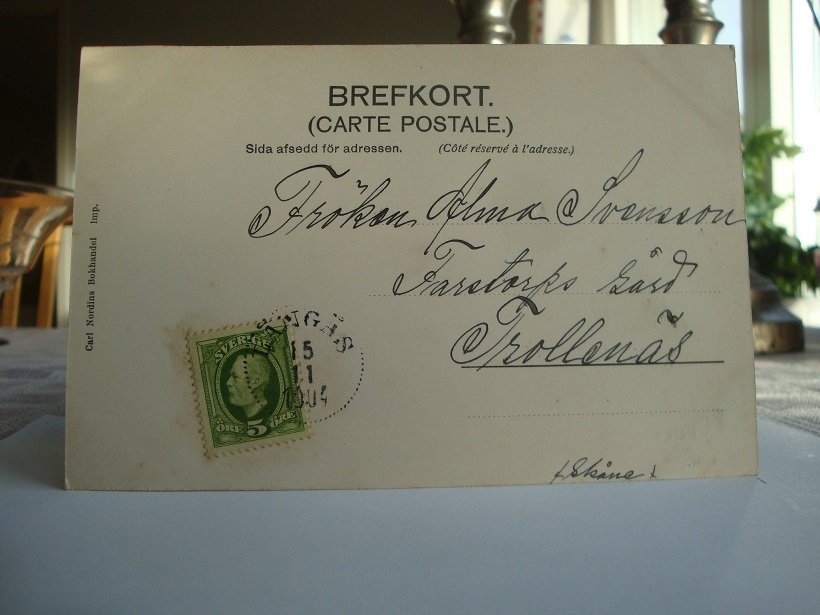 BREFKORT.
(CARTE POSTALE.)
Sida afsedd för adressen. (Côté réservé à l'adresse.)
Fröken Alma Svensson
Farstorps Gård
Trollenäs
(Skåne)
Carl Nordins Bokhandel Imp.
SVERIGE
ÖRE 5 ÖRE
15
11
1904